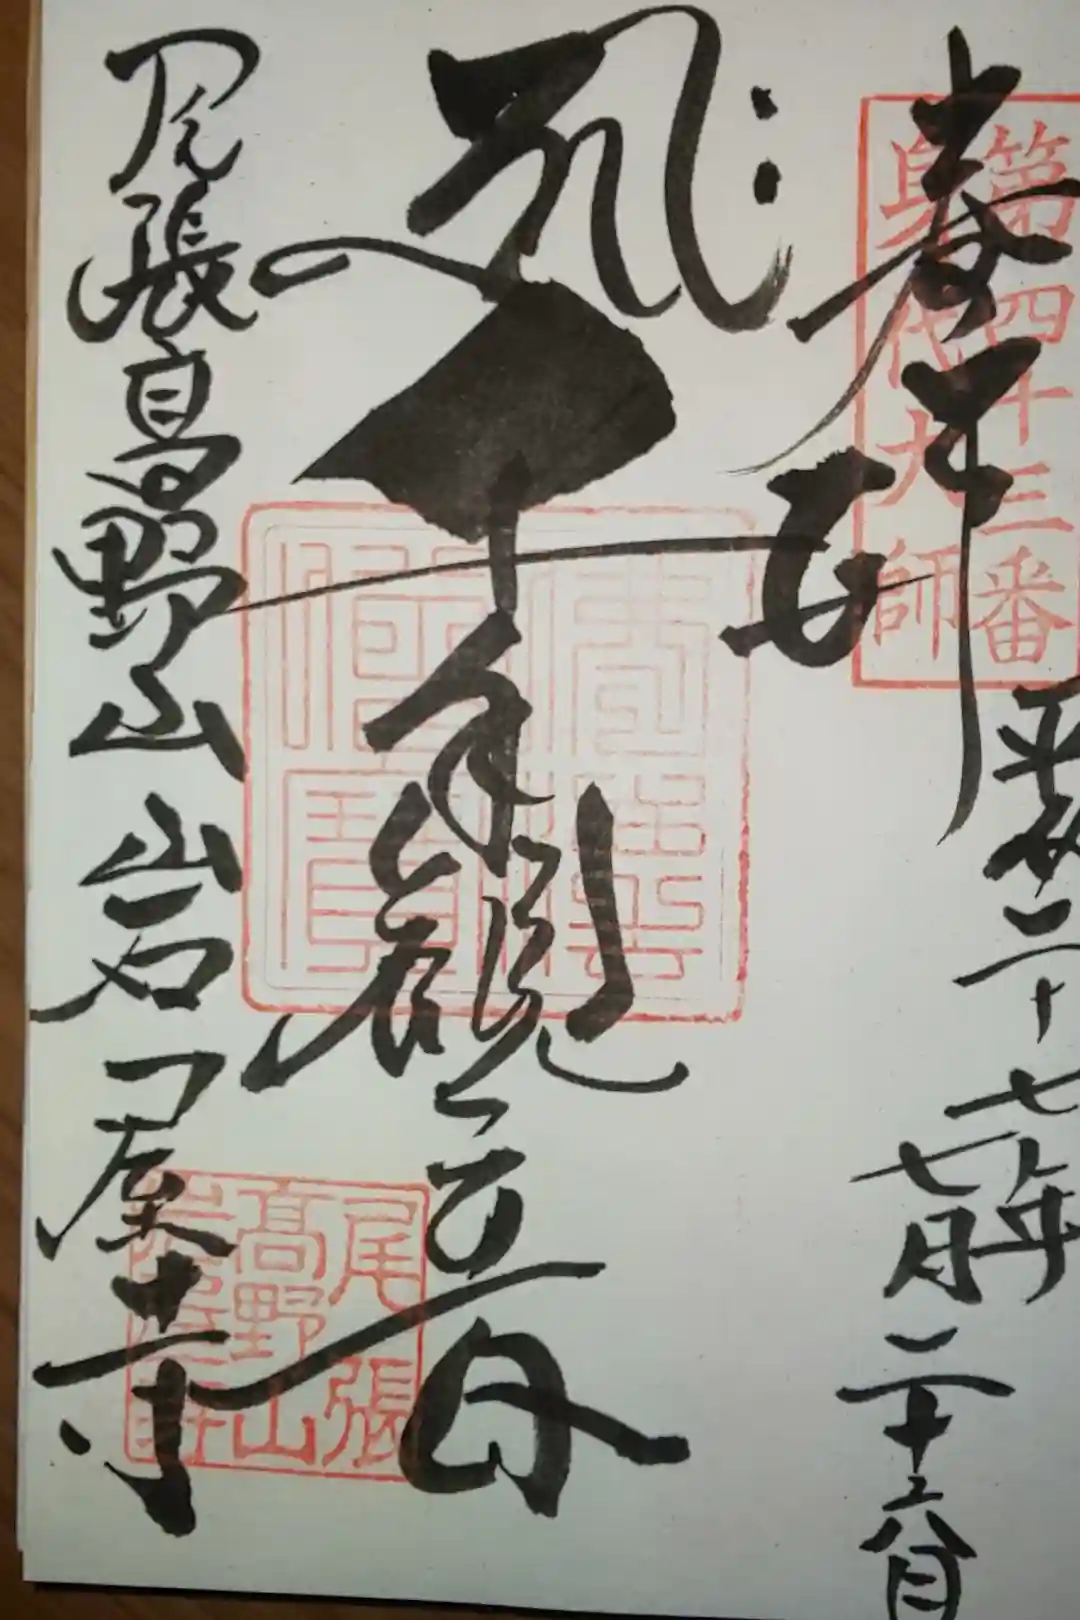 奉拝
第四十三番
身代大師
平成二十七年
七月二十六日
千手観音
佛法僧寶
尾張高野山
岩屋寺
尾張高野山岩屋寺